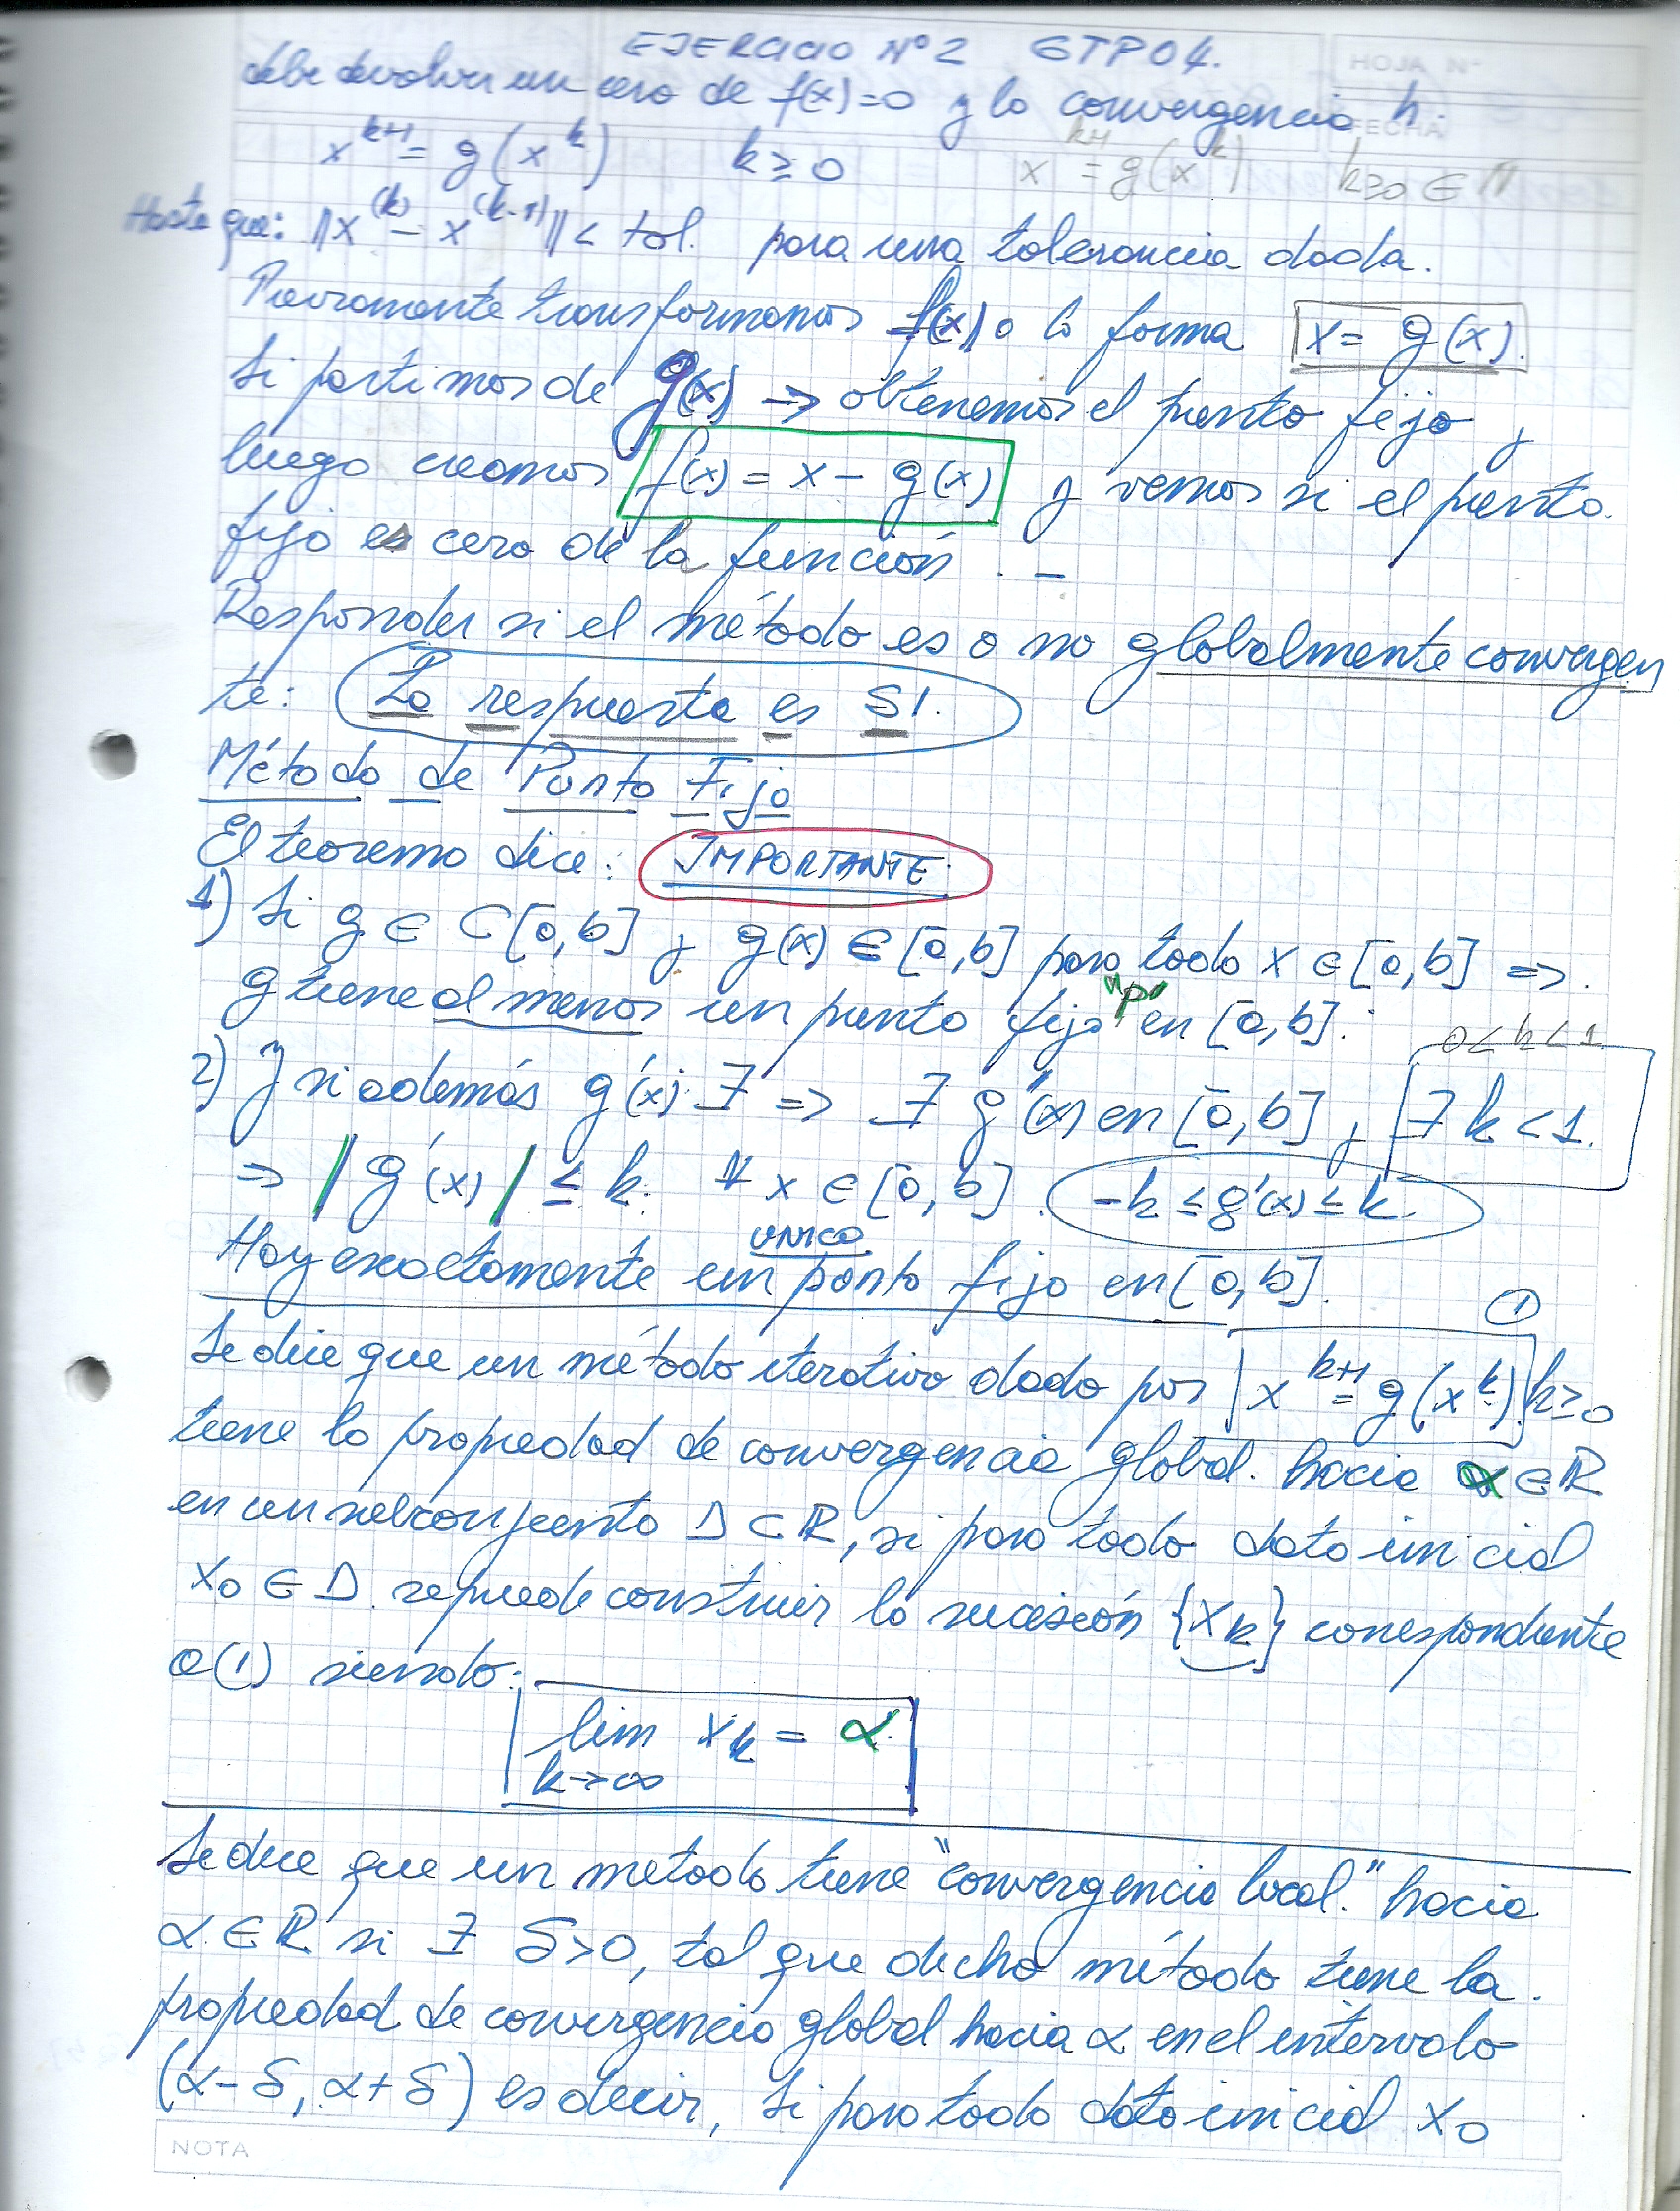 EJERCICIO Nº 2 GTP04.
HOJA Nº
debe devolver un cero de f(x)=0 y la convergencia h.
FECHA
x^{k+1} = g(x^k) k ≥ 0 x^{k+1} = g(x^k) k≥0 ∈ N
Hasta que: ||x^{(k)} - x^{(k-1)}|| < tol. para una tolerancia dada.
Previamente transformamos f(x) a la forma x = g(x).
Si partimos de g(x) → obtenemos el punto fijo y
luego creamos f(x) = x - g(x) y vemos si el punto
fijo es cero de la función. -
Responder si el método es o no globalmente convergen
te: La respuesta es SI.
Método de Punto Fijo
El teorema dice: IMPORTANTE.
1) Si g ∈ C[a,b] y g(x) ∈ [a,b] para todo x ∈ [a,b] =>.
g tiene al menos un punto fijo "p" en [a,b].
0<k<1
2) Y si además g'(x) ∃ => ∃ g'(x) en [a,b] y ∃ k < 1.
=> |g'(x)| ≤ k. ∀ x ∈ [a,b]. -k ≤ g'(x) ≤ k.
UNICO
Hay exactamente un punto fijo en [a,b].
①
Se dice que un método iterativo dado por x^{k+1} = g(x^k) k≥0
tiene la propiedad de convergencia global. hacia α ∈ R
en un subconjunto D ⊂ R, si para todo dato inicial
x₀ ∈ D. se puede construir la sucesión {x_k} correspondiente
a (1) siendo:
lim x_k = α.
k→∞
Se dice que un metodo tiene "convergencia local." hacia
α ∈ R si ∃ δ>0, tal que dicho método tiene la.
propiedad de convergencia global hacia α en el intervalo
(α-δ, α+δ) es decir, si para todo dato inicial x₀
NOTA